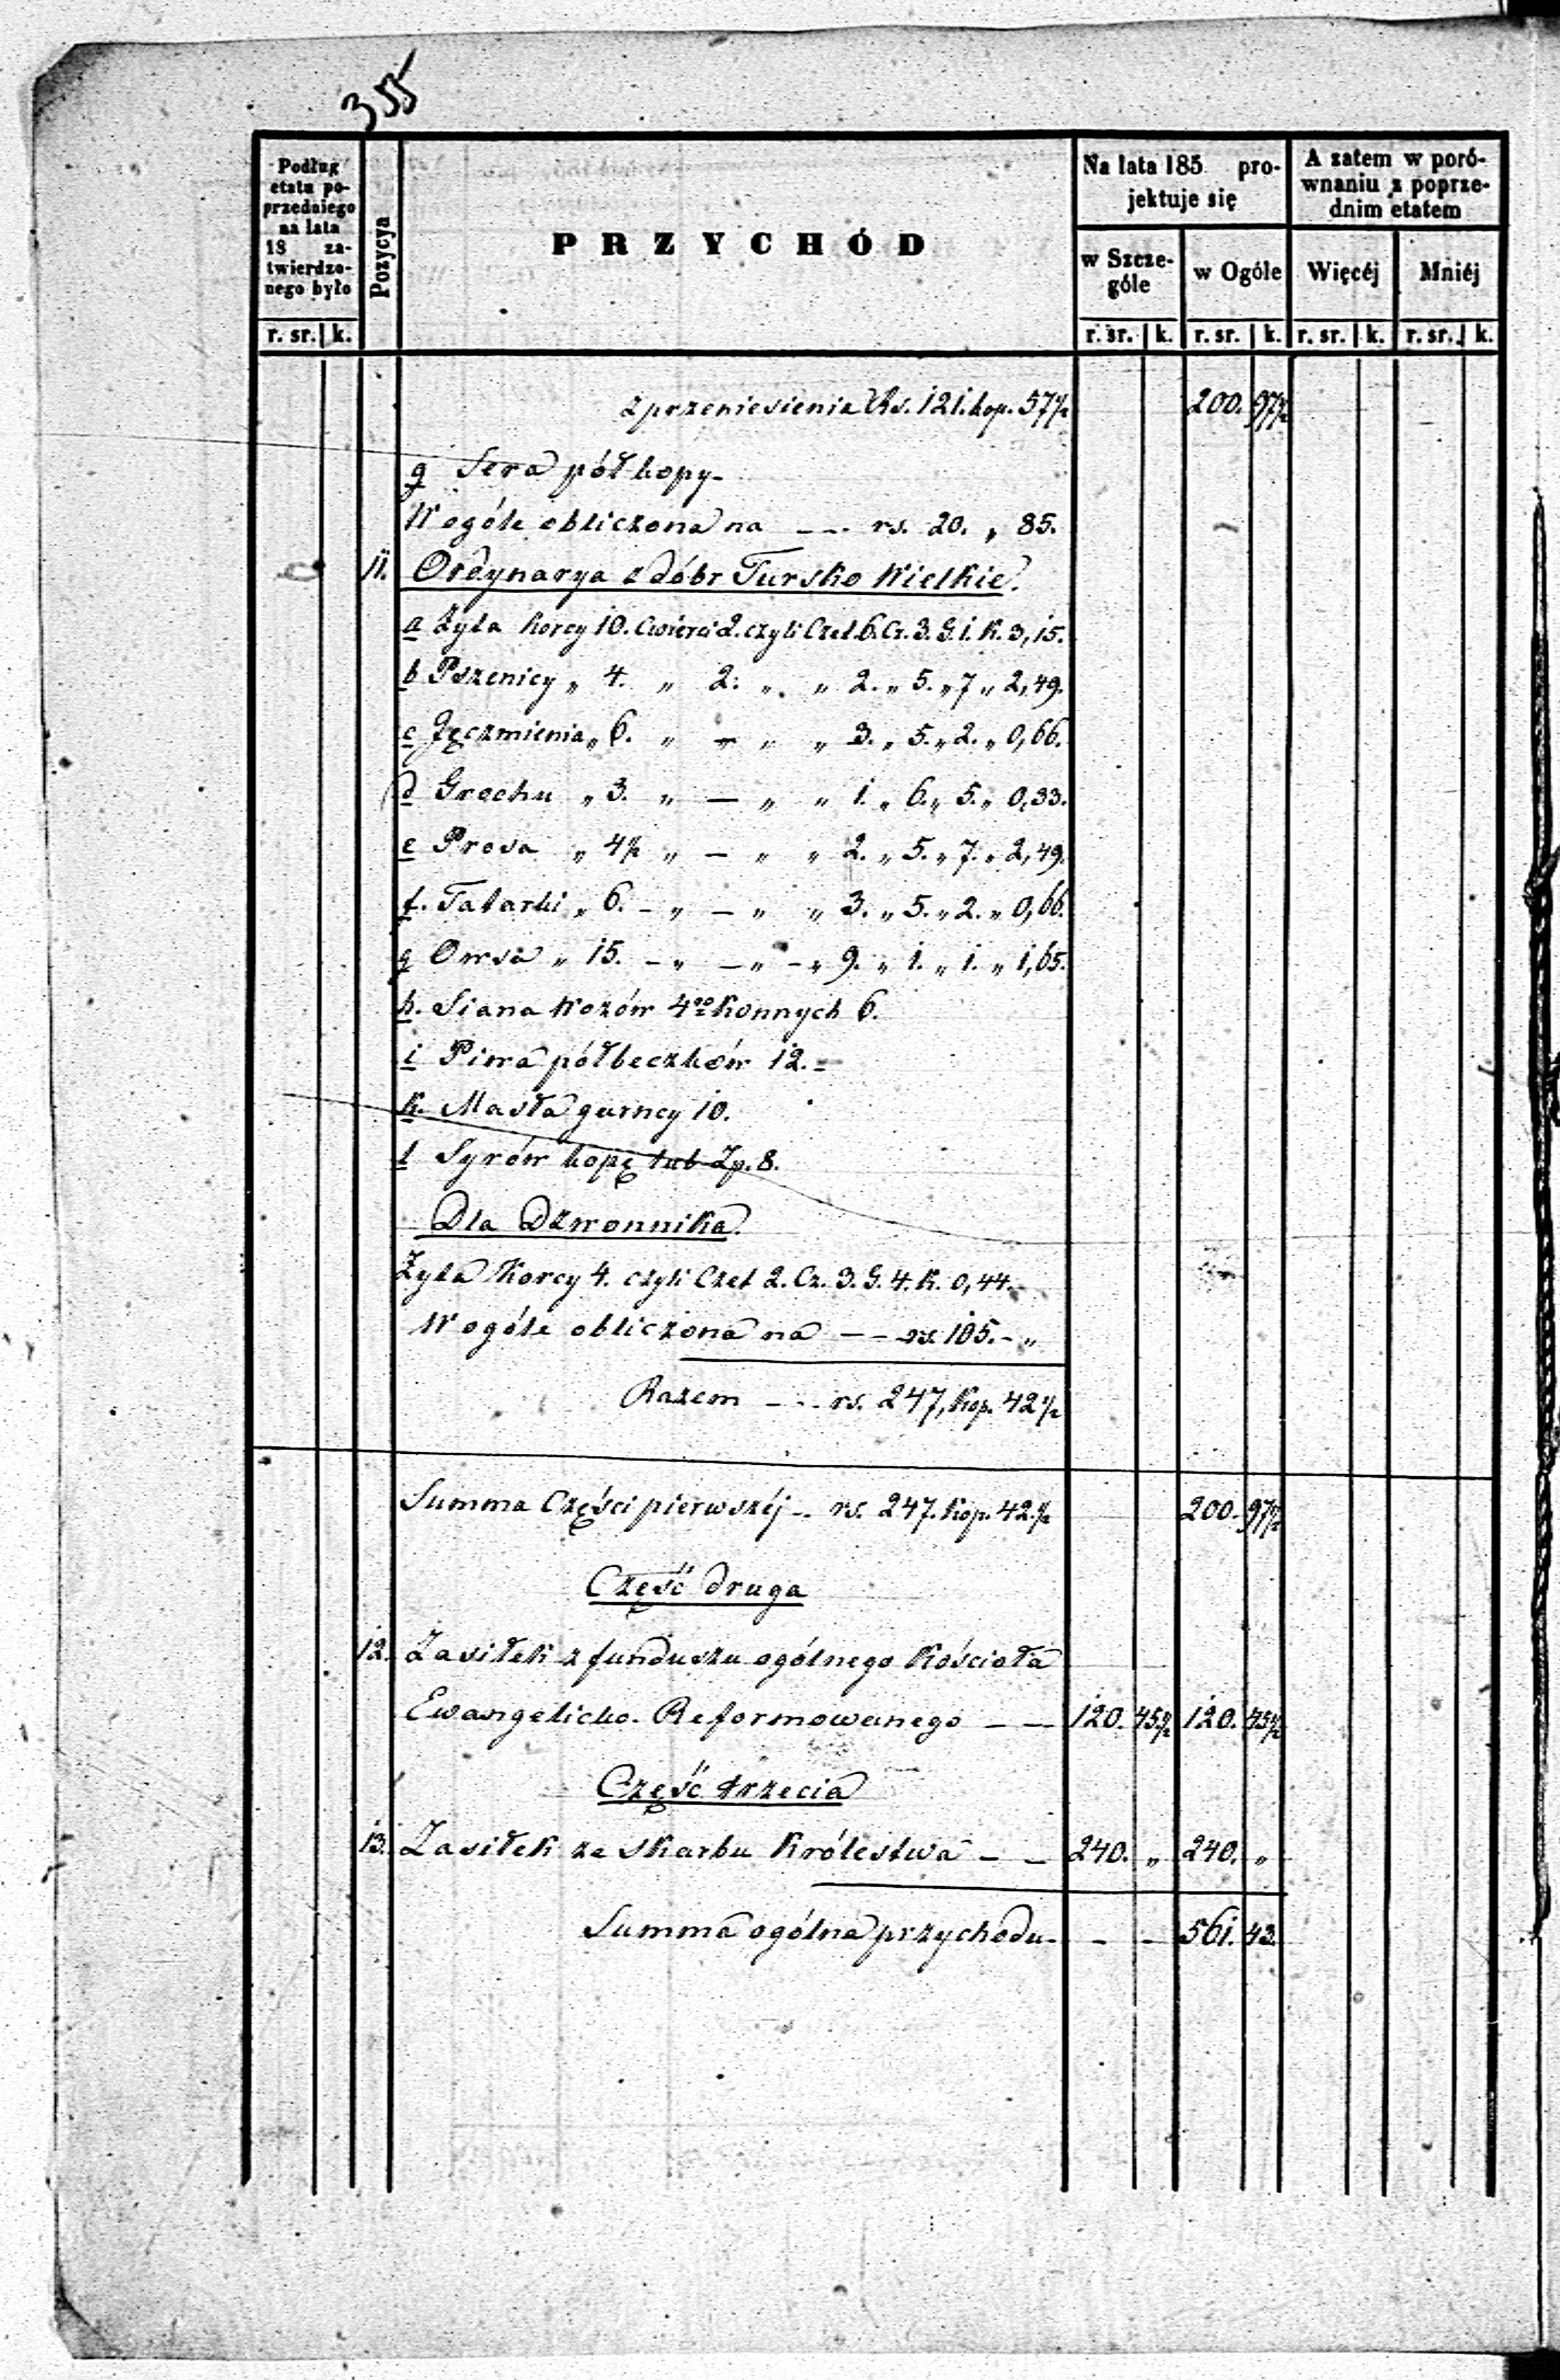 355
Podług
etatu po-
przedniego
na lata
18 za-
twierdzo-
nego było
r. sr. k.
Pozycya
PRZYCHÓD
Na lata 185 pro-
jektuje się
w Szcze-
góle
w Ogóle
r. sr. k. r. sr. k.
A zatem w poró-
wnaniu z poprze-
dnim etatem
Więcéj Mniéj
r. sr. k. r. sr. k.
z przeniesienia Rs. 121. kop. 57½ 200. 97½
g Sera pół kopy-
W ogóle obliczona na — — rs. 20. „ 85.
11. Ordynarya z dóbr Tursko Wielkie.
a Żyta korcy 10. Cwierci 2. czyli Czet. 6. Cz. 3. G. 1. K. 3,15.
b Pszenicy „ 4. „ 2. „ „ 2. „ 5. „ 7 „ 2,49.
c Jęczmienia „ 6. „ — „ „ 3. „ 5. „ 2. „ 0,66.
d Grochu „ 3. „ — „ „ 1. „ 6. „ 5. „ 0,33.
e Prosa „ 4½ „ — „ „ 2. „ 5. „ 7. „ 2,49.
f. Tatarki „ 6. — „ — „ „ 3. „ 5. „ 2. „ 0,66.
g Owsa „ 15. — „ — „ — „ 9. „ 1. „ 1. „ 1,65.
h. Siana Wozów 4ro Konnych 6.
i Piwa półbeczków 12. =
k. Masła garncy 10.
l Syrów kopę lub Zp. 8.
Dla Dzwonnika.
Żyta Korcy 4. czyli Czet 2. Cz. 3. G. 4. K. 0,44.
W ogóle obliczona na — — rs. 105. - „
Razem — — rs. 247, Kop. 42½
Summa Części pierwszéj - rs. 247. Kop. 42.½ 200. 97½
Część druga
12. Zasiłek z funduszu ogólnego Kościoła
Ewangelicko-Reformowanego — — 120. 45½ 120. 45½
Część trzecia
13. Zasiłek ze Skarbu Królestwa — — 240. „ 240. „
Summa ogólna przychodu - - - 561. 43.